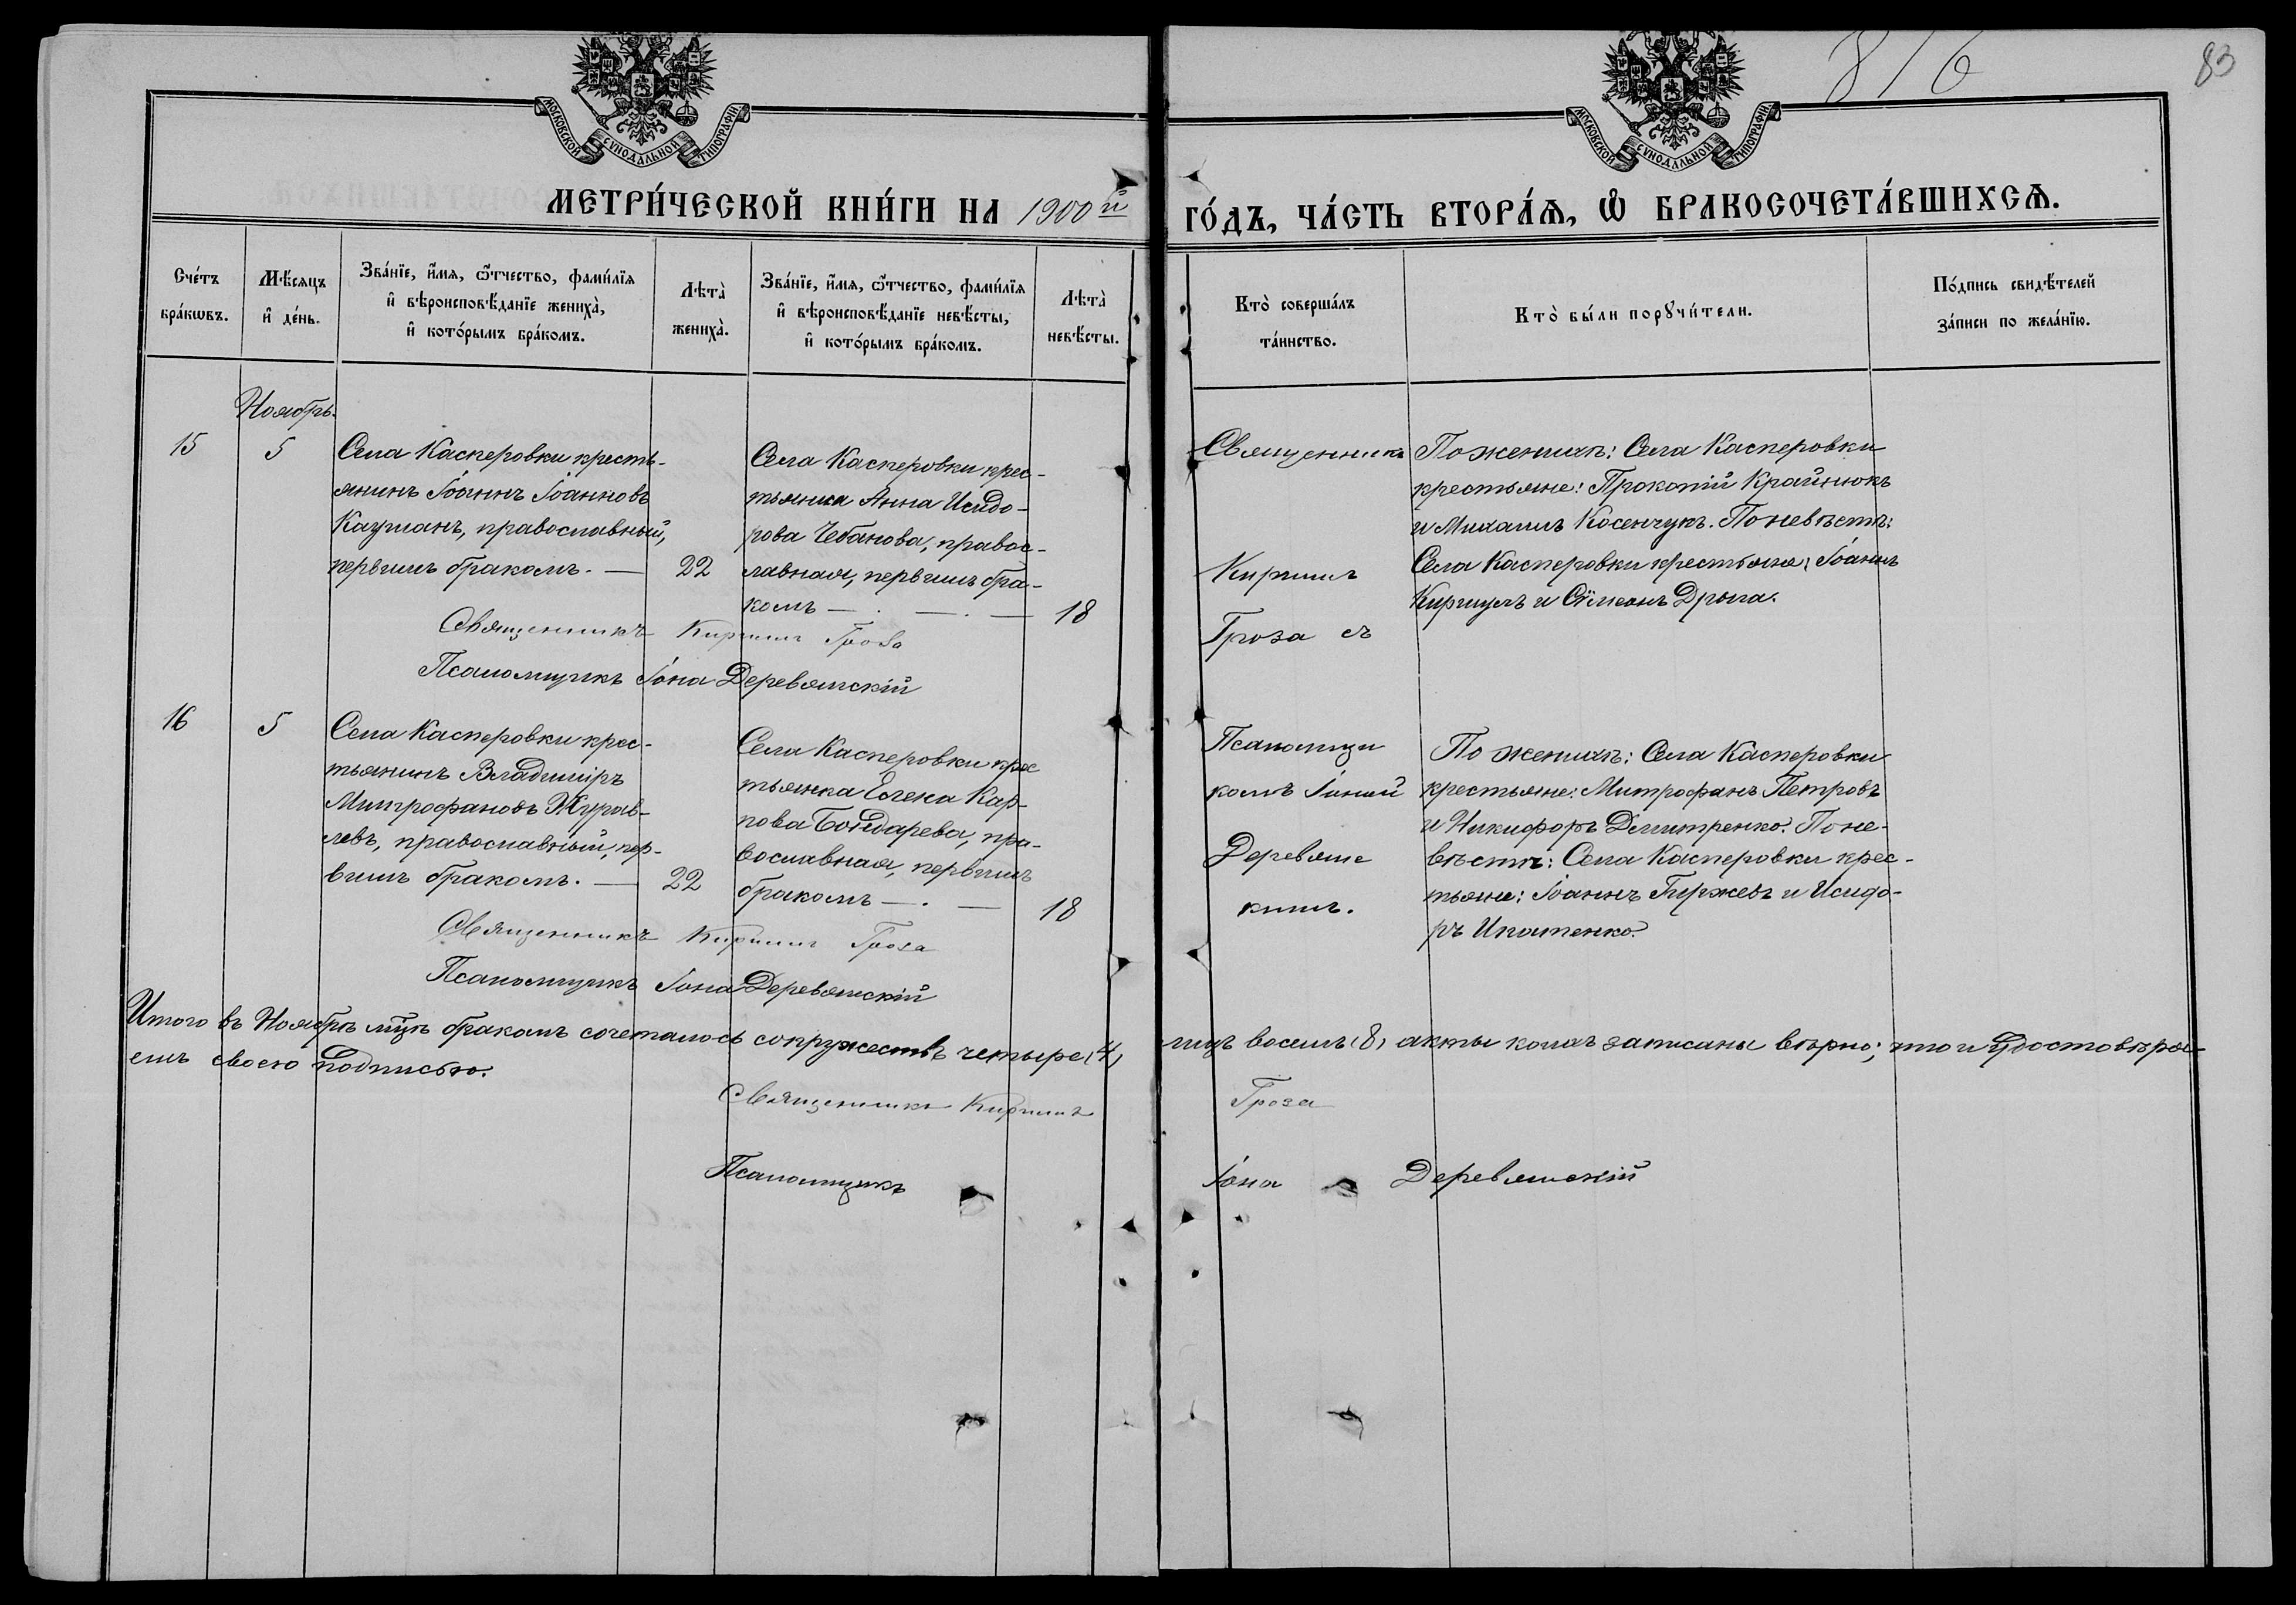 816
83
МОСКОВСКОЙ СѴНОДАЛЬНОЙ ТИПОГРАФІИ
МОСКОВСКОЙ СѴНОДАЛЬНОЙ ТИПОГРАФІИ
МЕТРИ́ЧЕСКОЙ КНИ́ГИ НА 1900й ГО́ДЪ, ЧА́СТЬ ВТОРА́Ѧ, Ѽ БРАКОСОЧЕТА́ВШИХСѦ.
Сче́тъ
бра́кѡвъ.
Мѣ́сяцъ
и҆ де́нь.
Зва́нїе, и҆́мя, ѻ҆́тчество, фами́лїя
и҆ вѣроисповѣ́данїе жениха̀,
и҆ кото́рымъ бра́комъ.
Лѣта̀
жениха̀.
Зва́нїе, и҆́мя, ѻ҆́тчество, фами́лїя
и҆ вѣроисповѣ́данїе невѣ́сты,
и҆ кото́рымъ бра́комъ.
Лѣта̀
невѣ́сты.
Кто̀ соверша́лъ
та́инство.
Кто̀ бы́ли порꙋчи́тели.
По́дпись свидѣ́телей
за́писи по жела́нїю.
Ноябрь.
15
5
Села Касперовки кресть-
янинъ Іоаннъ Іоанновъ
Кауманъ, православный,
первымъ бракомъ. —
22
Села Касперовки крес-
тьянка Анна Исидо-
рова Чебанова, правос-
лавная, первымъ бра-
комъ — . — . —
18
Священникъ Кириллъ Гроза
Псаломщикъ Іона Деревянскій
Священникъ
Кириллъ
Гроза съ
По женихѣ: Села Касперовки
крестьяне: Прокопій Крайнюкъ
и Михаилъ Косенчукъ. По невѣстѣ:
Села Касперовки крестьяне: Іоаннъ
и Сѵмеонъ Дрыга.
16
5
Села Касперовки крес-
тьянинъ Владиміръ
Митрофановъ Журав-
левъ, православный, пер-
вымъ бракомъ. —
22
Села Касперовки крес
тьянка Елена Кар-
пова Бондарева, пра-
вославная, первымъ
бракомъ — . —
18
Священникъ Кириллъ Гроза
Псаломщикъ Іона Деревянскій
Псаломщи
комъ Іоной
Деревянс
кимъ.
По женихѣ: Села Касперовки
крестьяне: Митрофанъ Петровъ
и Никифоръ Дмитренко. По не-
вѣстѣ: Села Касперовки крес-
тьяне: Іоаннъ Гержевъ и Исидо-
ръ Ипатенко.
Итого въ Ноябрѣ мцѣ бракомъ сочеталось супружествъ четыре (4) лицъ восемь (8) акты коихъ записаны вѣрно; что и удостовѣря-
емъ своею подписью.
Священникъ Кириллъ Гроза
Псаломщикъ Іона Деревянскій